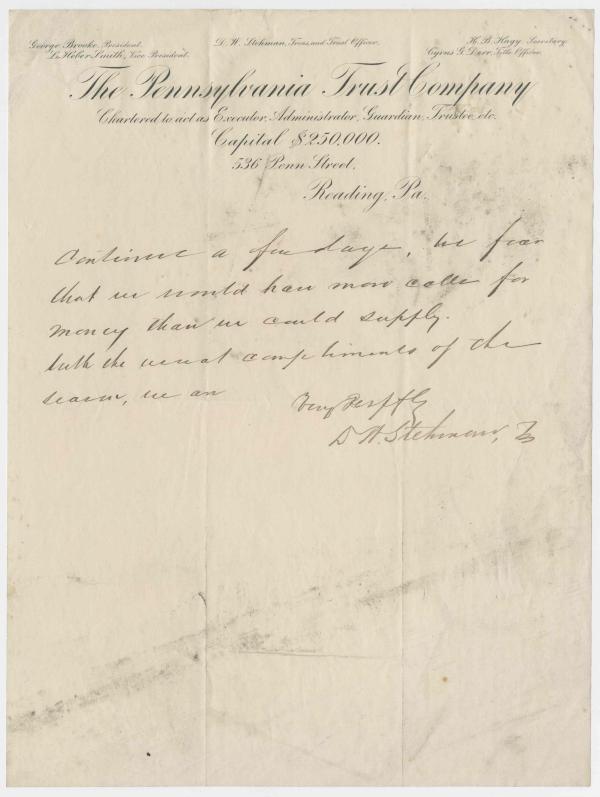 George Brooke, President.
L. Heber Smith, Vice President.
D. W. Stehman, Treas. and Trust Officer.
H. B. Hagy, Secretary.
Cyrus G. Derr, Title Officer.
The Pennsylvania Trust Company
Chartered to act as Executor, Administrator, Guardian, Trustee, etc.
Capital $250,000.
536 Penn Street,
Reading, Pa.
continue a few days, we fear
that we would have more calls for
money than we could supply.
With the usual compliments of the
season, we are
Very Respfly
D W. Stehman, Tr